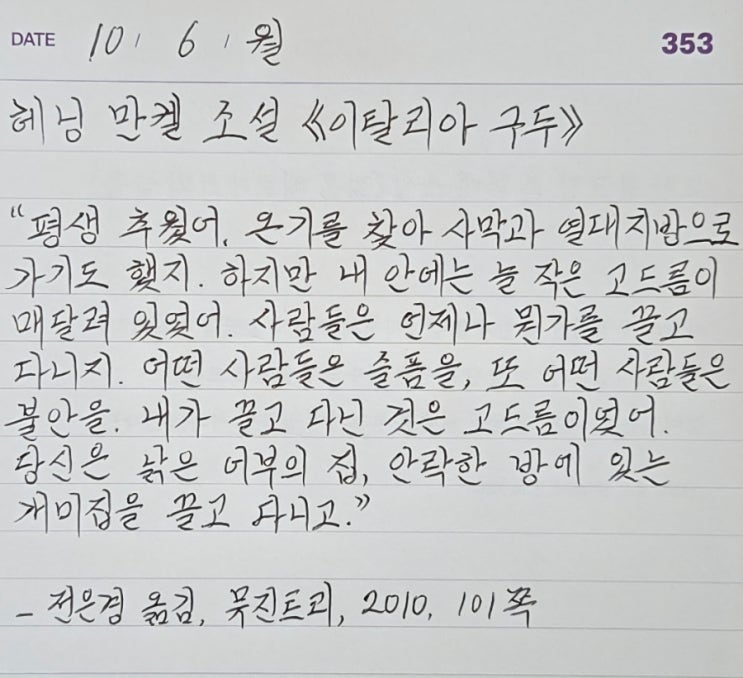 DATE 10 / 6 / 월 353
헤닝 만켈 소설 《이탈리아 구두》
“평생 추웠어. 온기를 찾아 사막과 열대지방으로
가기도 했지. 하지만 내 안에는 늘 작은 고드름이
매달려 있었어. 사람들은 언제나 뭔가를 끌고
다니지. 어떤 사람들은 슬픔을, 또 어떤 사람들은
불안을. 내가 끌고 다닌 것은 고드름이었어.
당신은 낡은 어부의 집, 안락한 방에 있는
개미집을 끌고 다니고.”
- 전은경 옮김, 뮤진트리, 2010, 101쪽